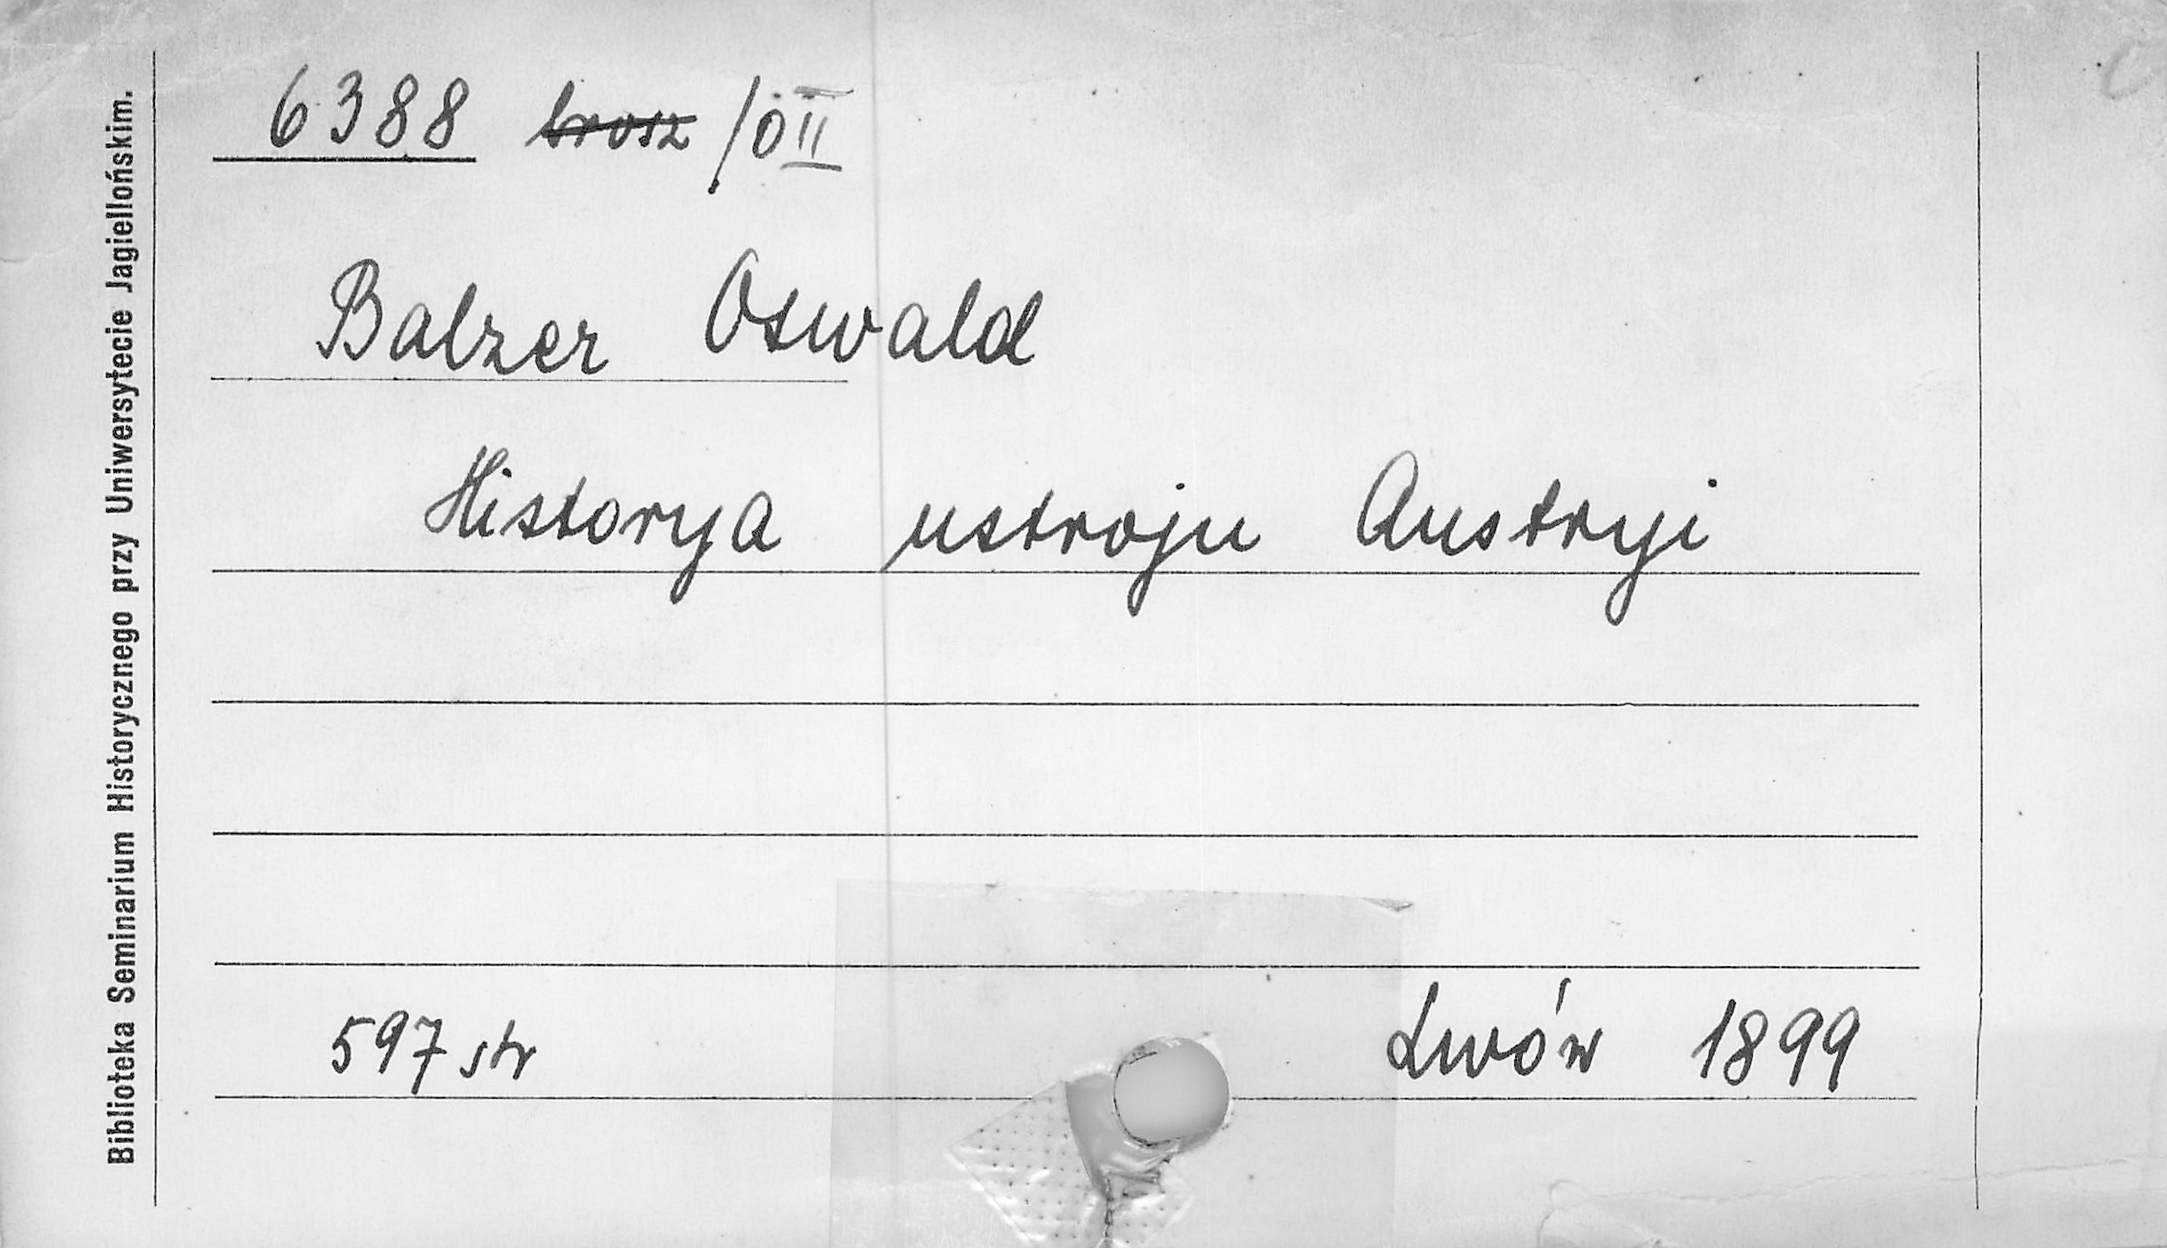 Biblioteka Seminarium Historycznego przy Uniwersytecie Jagiellońskim.
6388 brosz /OII
Balzer Oswald
Historya ustroju Austryi
597 str
Lwów 1899